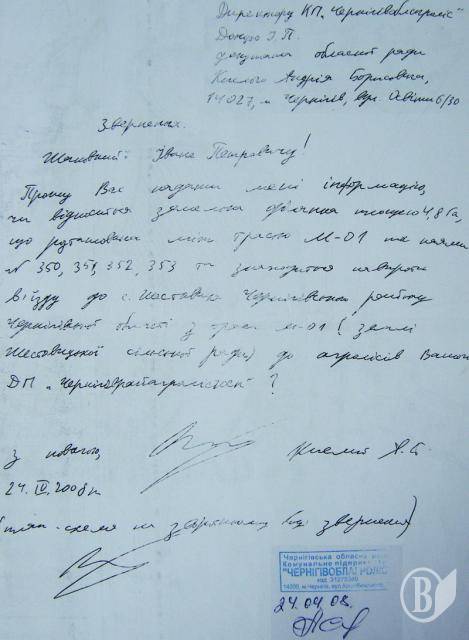 Директору КП „Чернігівоблагроліс"
І. П.
депутата обласної ради
Андрія Борисовича,
14027, м Чернігів, вул. Освіти 6/30
Звернення.
Шановний Іване Петровичу!
Прошу Вас надати мені інформацію,
чи відноситься земельна ділянка площею 4,8 га,
що розташована між трасою М-01 та паями
№ 350, 351, 352, 353 та знаходиться навпроти
в'їзду до с. Шестовиця Чернігівського району
Чернігівської області з траси М-01 (землі
Шестовицької сільської ради) до агролісів Вашого
ДП „Чернігіврайагролісгосп" ?
З повагою,
24. IV. 2008 р.
(план-схема на зворотному боці звернення)
Чернігівська обласна рада
Комунальне підприємство
"ЧЕРНІГІВОБЛАГРОЛІС"
код
14000, м Чернігів, вул.
24.04.08.
В